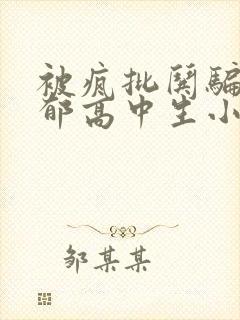 被疯批闵骗
郁高中生小
邹某某